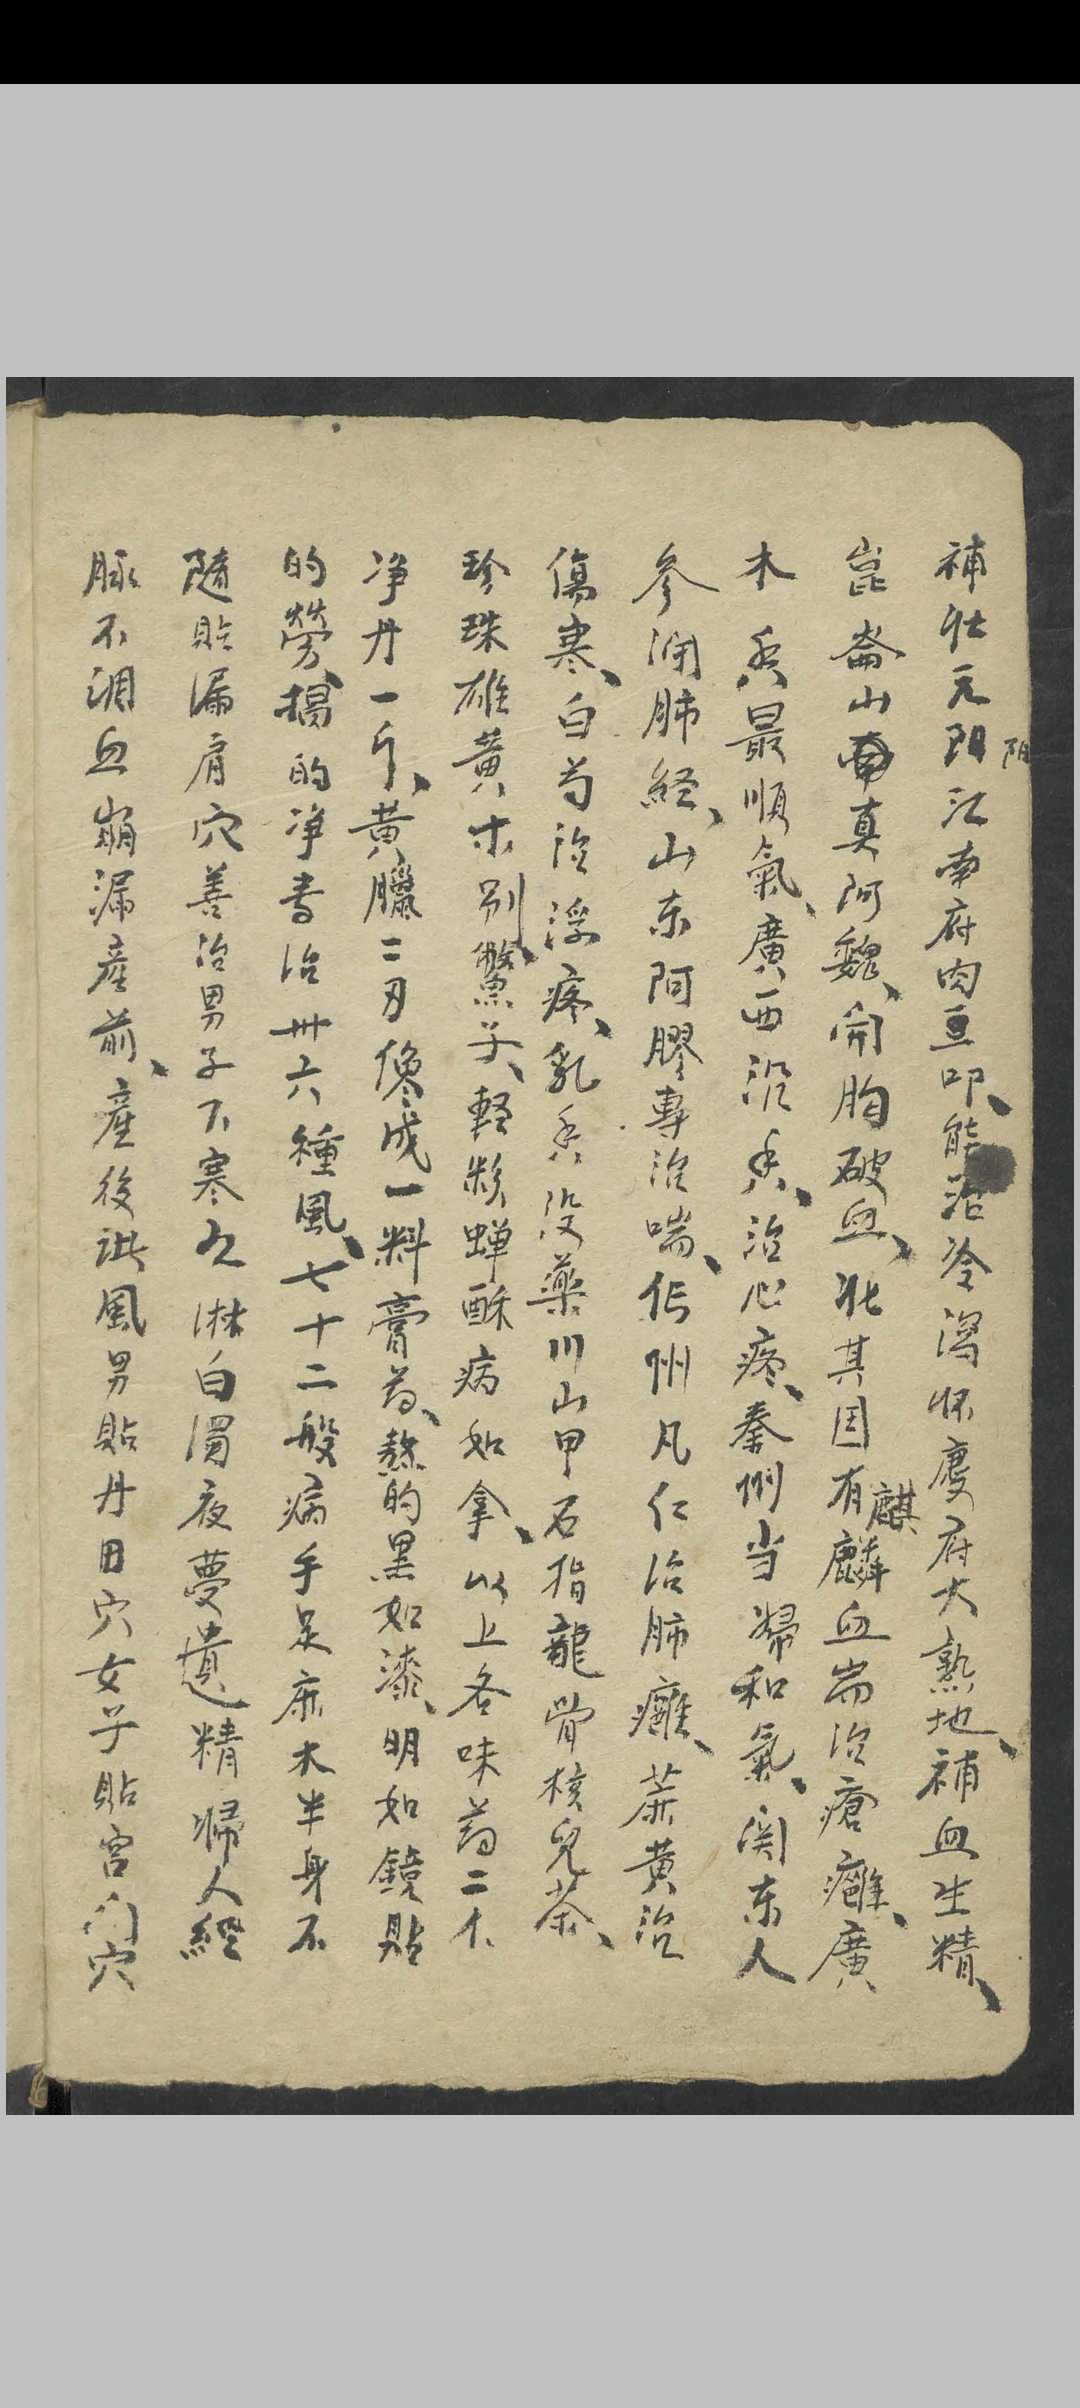 補壮元阳江南府肉豆叩、能治冷瀉怀慶府大熟地、補血生精、
阳
崑崙山真阿魏、開胸破血、北其因有麟血耑治瘡癰、廣
麒
木香最順氣、廣西沉香、治心疼、秦州当歸和氣、関东人
参润肺経、山东阿膠專治喘、州凡仁治肺癰、蔴黄治
傷寒、白芍治浮疼、乳香没藥川山甲石指龍骨核兒茶、
珍珠雄黄木别鱉子、軽粉蝉酥病如拿、以上各味药二个
净丹一斤、黄臘二刃儳成一料膏药、熬的黑如漆、明如鏡貼
的劳、揭的净耑治卅六種風、七十二般病手足麻木半身不
隨貼漏肩穴善治男子下寒久淋白濁夜夢遺精婦人經
脉不調血崩漏產前、產後諸風男貼丹田穴女子貼宫门穴